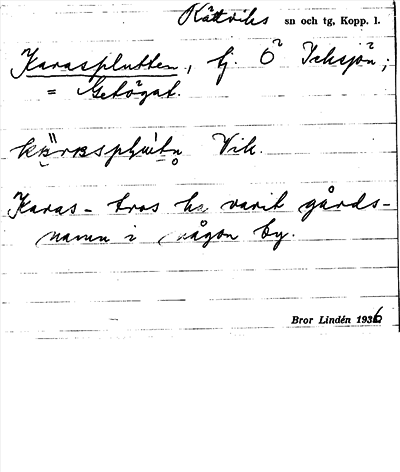 Rättviks sn och tg, Kopp. l.
Karasplutten, tj. Ö Icksjön;
= Getögat.
Vik.
Karas- tros ha varit gårds-
namn i någon by.
Bror Lindén 1936